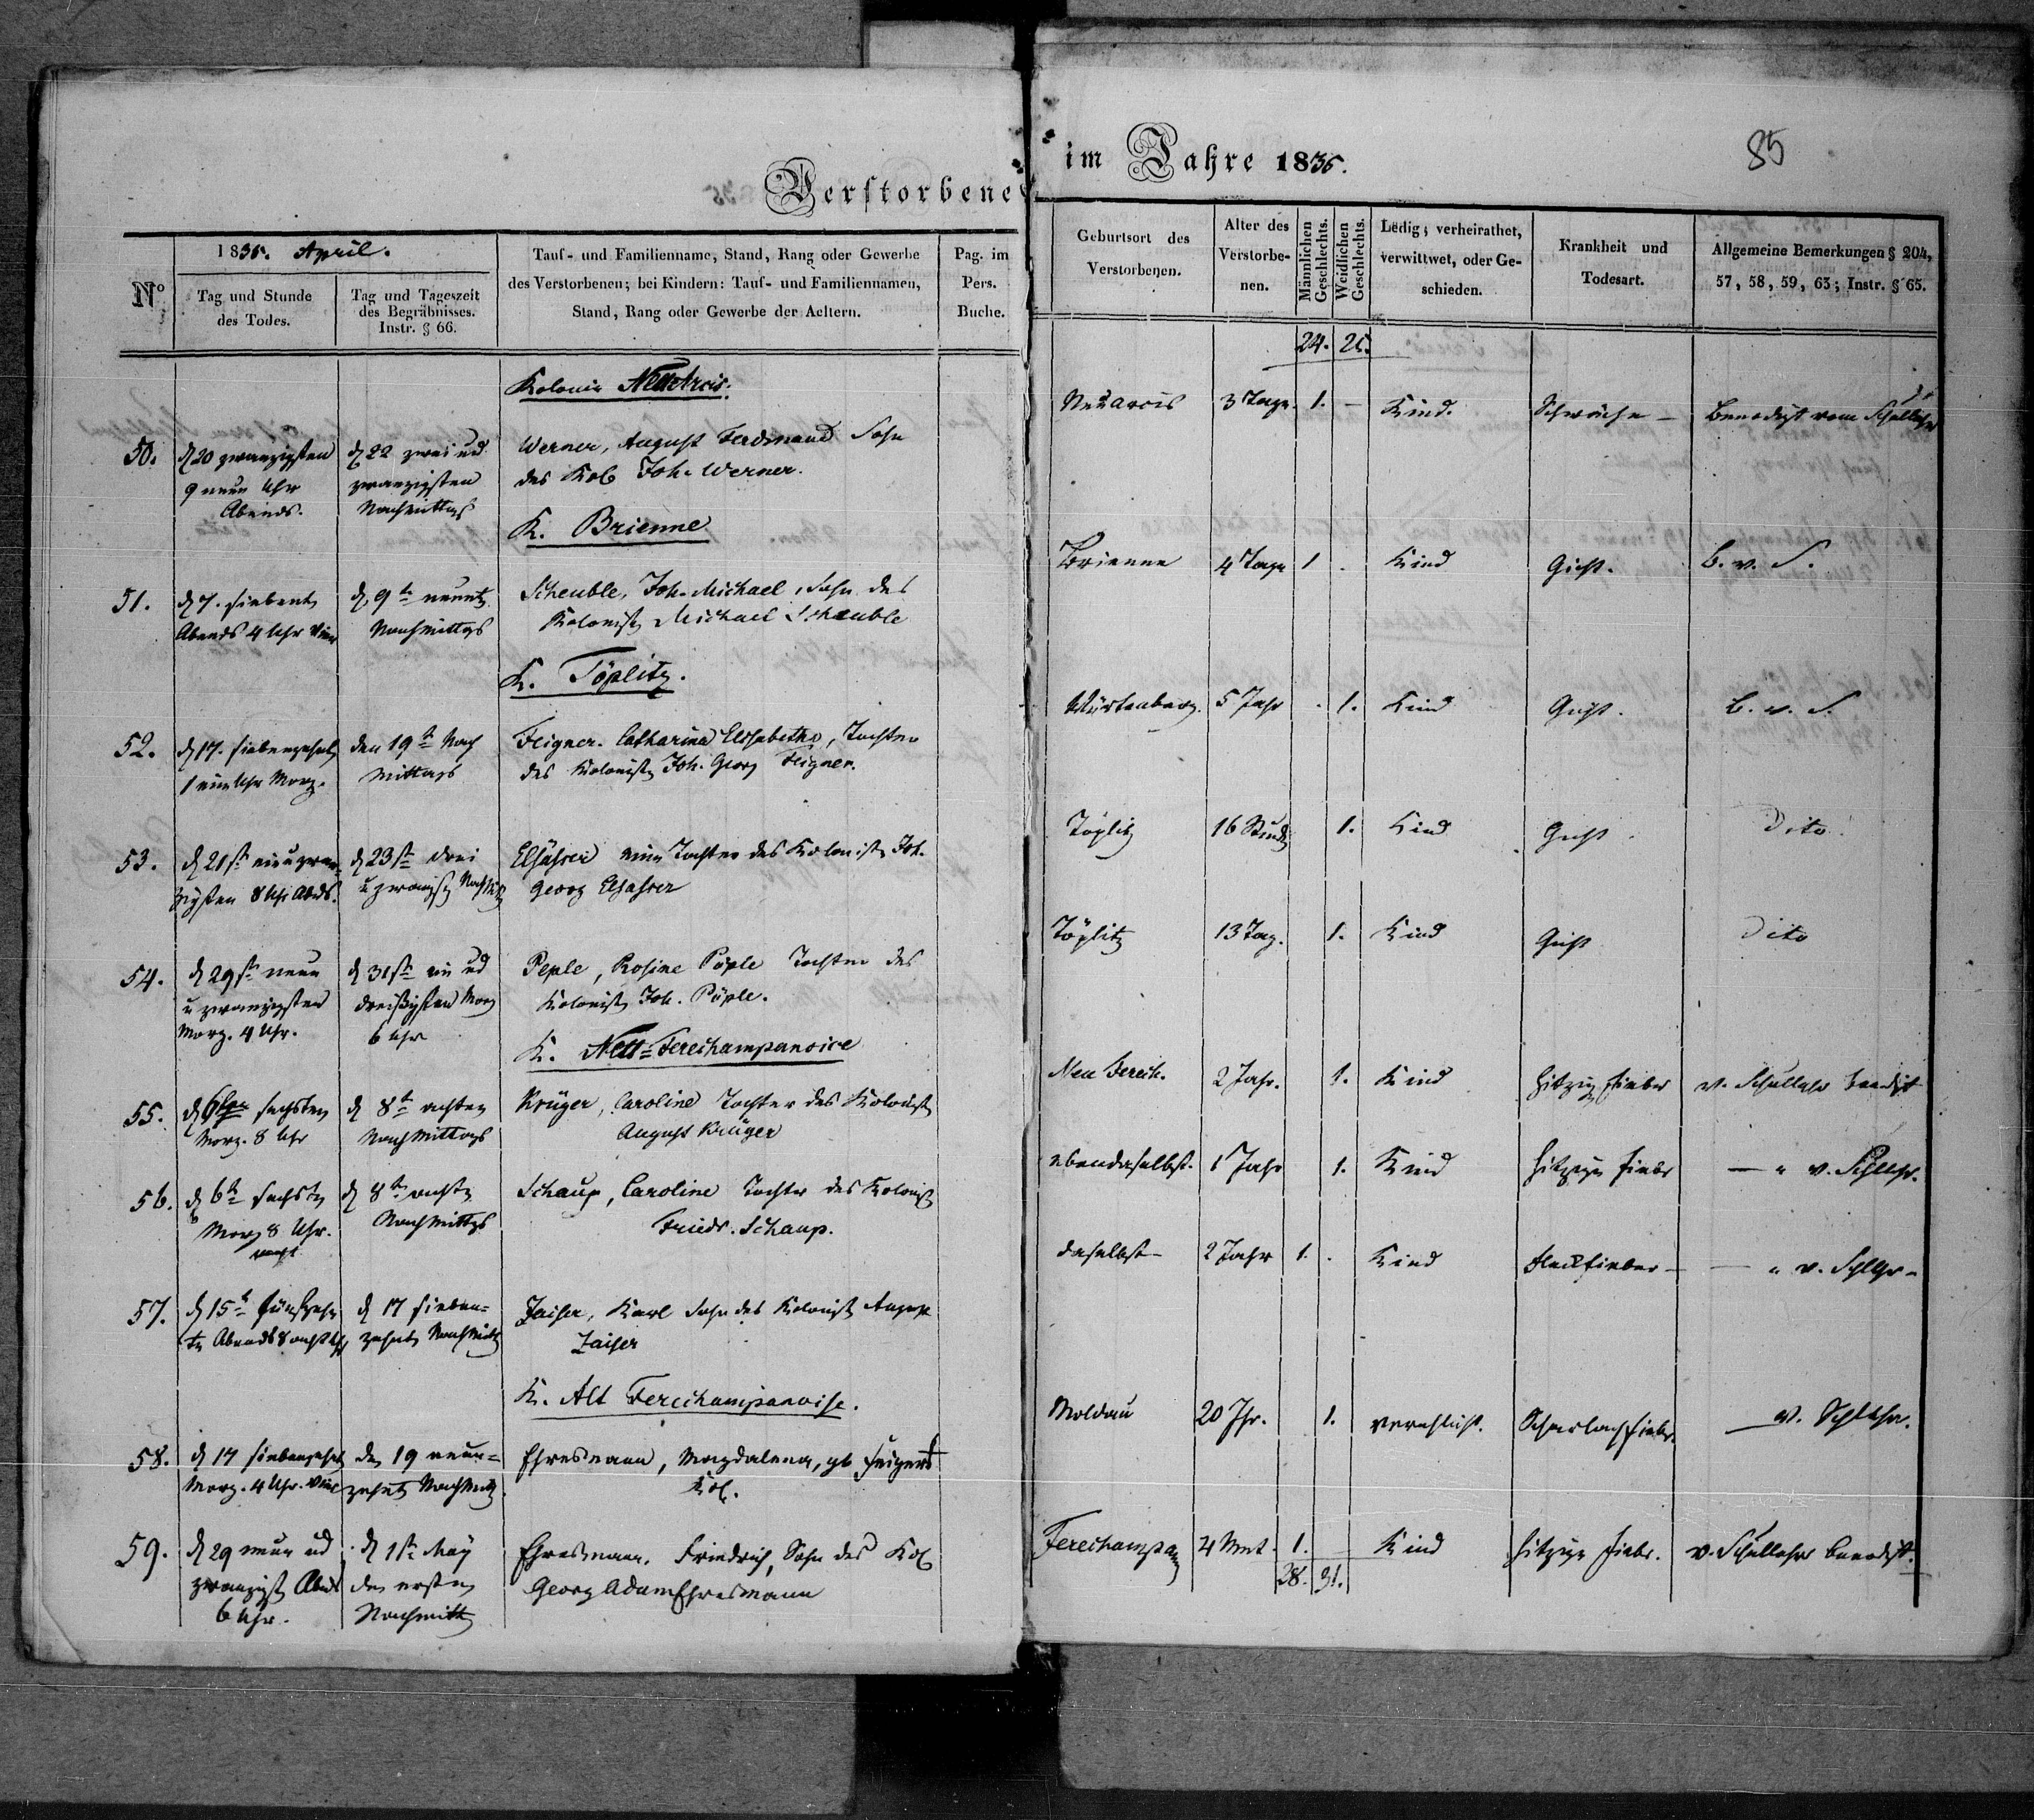 Verstorbene im Jahre 1835.
85
1835. April.
Nº
Tag und Stunde
des Todes.
Tag und Tageszeit
des Begräbnisses.
Instr. § 66.
Tauf- und Familienname, Stand, Rang oder Gewerbe
des Verstorbenen; bei Kindern: Tauf- und Familiennamen,
Stand, Rang oder Gewerbe der Aeltern.
Pag. im
Pers.
Buche.
Geburtsort des
Verstorbenen.
Alter des
Verstorbe-
nen.
Männlichen
Geschlechts.
Weidlichen
Geschlechts.
Ledig; verheirathet,
verwittwet, oder Ge-
schieden.
Krankheit und
Todesart.
Allgemeine Bemerkungen § 204,
57, 58, 59, 63; Instr. § 65.
24. 25.
Kolonie Neu Arcis.
50.
d 20 zwanzigsten
9 neun Uhr
Abends.
d 22 zwei und
zwanzigsten
Nachmittags
Werner, August Ferdinand Sohn
des Kol. Joh. Werner.
Neuarcis 3 Tage. 1. – Kind. Schwäche – Beerdigt vom Schullehr
K. Brienne
51.
d 7. siebent
Abends 4 Uhr vier
d. 9t neunt
Nachmittags
Scheuble, Joh. Michael, Sohn des
Kolonist Michael Scheuble
Brienne 4 Tage 1 . Kind Gicht. B. v. S.
K. Töplitz.
52.
d 17. siebenzehnt
1 ein Uhr Morg.
den 19t Nach
Mittags
Feigner. Catharina Elisabetha, Tochter
des Kolonist Joh. Georg Feigner.
Würtenberg. 5 Jahr . 1. Kind Gicht. B. v. S.
53.
d 21st ein u zwan-
zigsten 8 Uhr Abds.
d 23st drei
u zwanzigst Nachmitt
Elsäsßer eine Tochter des Kolonist Joh.
Georg Elsaßer
Töplitz 16 Stund 1. Kind Gicht Dito
54.
d 29st neun
u zwanzigsten
Morg. 4 Uhr.
d 31st ein und
dreißigsten Morg
6 Uhr
Peple, Rosine Päple Tochter des
Kolonist Joh. Päple.
Töplitz 13 Tag. 1. Kind Gicht Dito
K. Neu=Ferechampanoice
55.
d 6 sechsten
Morg. 8 Uhr
d 8t achten
Nachmittags
Krüger, Caroline Tochter des Kolonist
August Krüger
Neu Ferech. 2 Jahr. 1. Kind hitzig fieber v. Schullehr beerdigt
56.
d 6t sechst
Morg 8 Uhr.
acht
d 8t acht
Nachmittgs
Schaup, Caroline Tochter des Kolonist
Friedr. Schaup.
ebendaselbst. 1 Jahr 1. Kind hitzige fieber – " v. Schllhr.
57.
d 15t fünfzehn
te Abends 8 acht Uhr
d 17 sieben=
zehnt Nachmitt
Zaiser, Karl Sohn des Kolonist August
Zaiser
daselbst – 2 Jahr 1. . Kind Fleckfieber – – " v. Schlhr –
K. Alt Ferechampanoise.
58.
d 17 siebenzehnt
Morg. 4 Uhr. vier
den 19 neun=
zehnt Nachmitt
Ehresmann, Magdalena, gb Feigert
Kol.
Moldau 20 Jhr. 1. verehlicht. Scharlachfieber. – v. Schllhr.
59.
d 29 neun und
zwanzigst Abends
6 Uhr.
d 1st May
den ersten
Nachmitt
Ehresmann, Friedrich, Sohn des Kol
Georg Adam Ehresmann
Ferechampan 4 Mnt. 1. Kind hitzige fieber. v. Schullehr beerdigt.
28. 31.